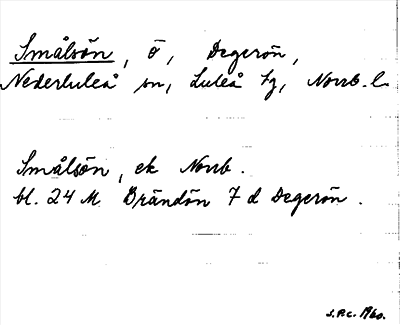 Smålsön, ö, Degerön,
Nederluleå sn, Luleå tg, Norrb. l.
Smålsön, ek Norrb.
bl. 24 M Brändön 7 d Degerön.
J.P.C. 1960.